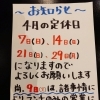 ～お知らせ～
4月の定休日
7日(日)、14日(日)
21日(日)、29日(月)
になりますので
よろしくお願いします
尚、9日は、諸事情に